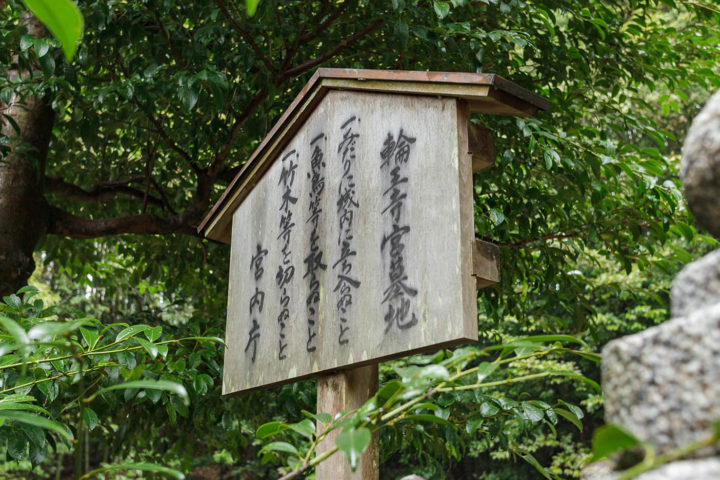 輪王寺宮墓地
一、みだりに域内に立入らぬこと
一、魚鳥等を取らぬこと
一、竹木等を切らぬこと
宮内庁